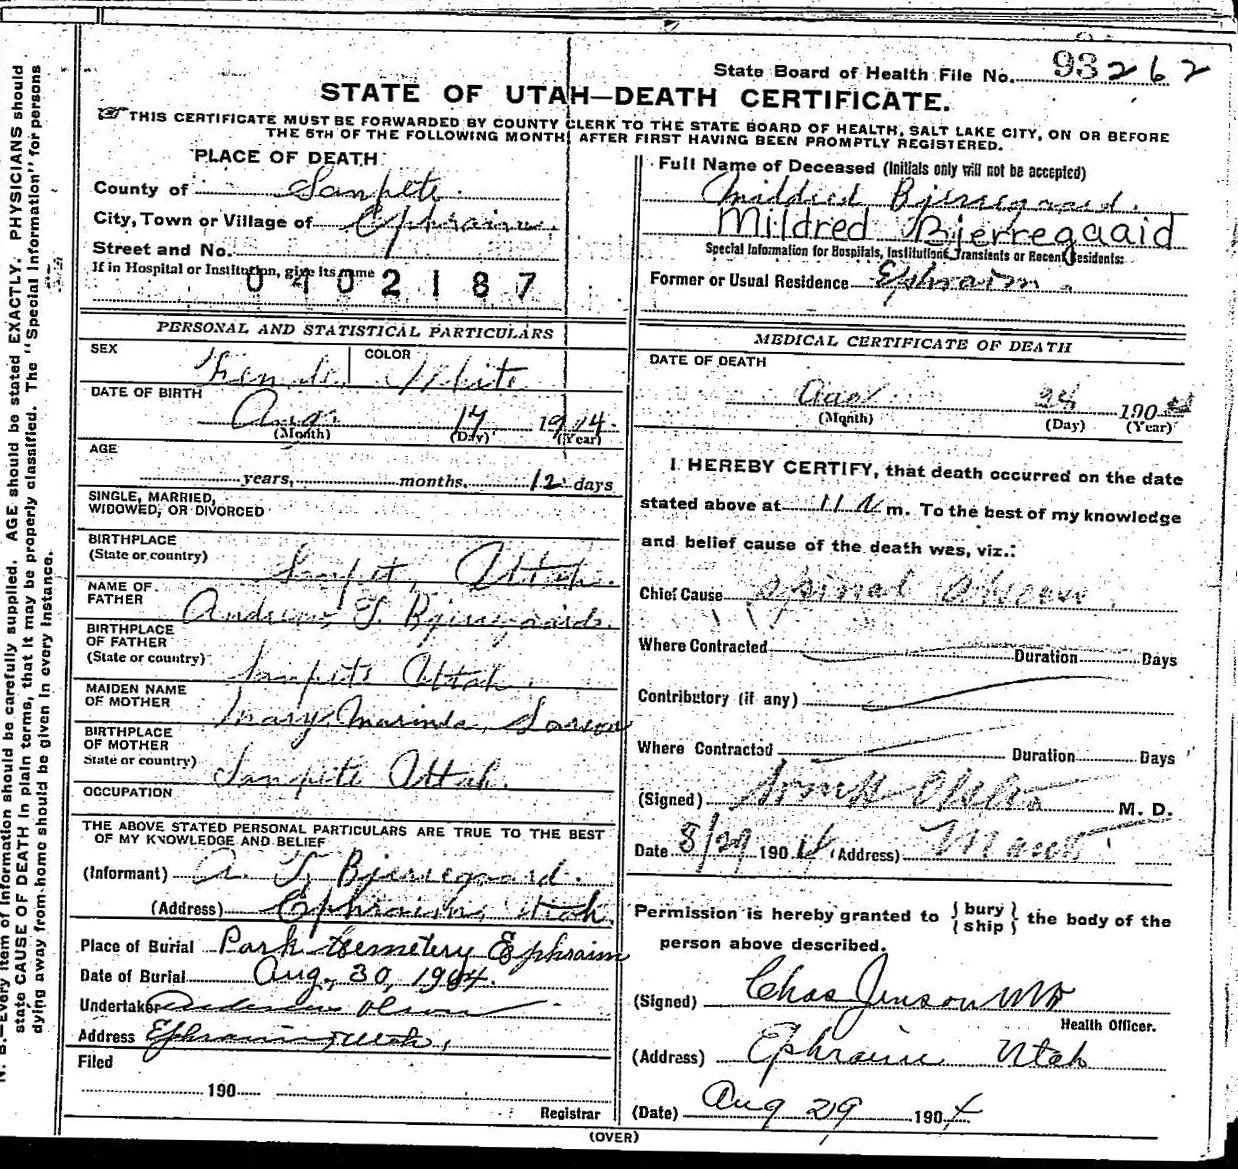 State Board of Health File No. 93262
STATE OF UTAH—DEATH CERTIFICATE.
THIS CERTIFICATE MUST BE FORWARDED BY COUNTY CLERK TO THE STATE BOARD OF HEALTH, SALT LAKE CITY, ON OR BEFORE
THE 5TH OF THE FOLLOWING MONTH AFTER FIRST HAVING BEEN PROMPTLY REGISTERED.
PLACE OF DEATH
County of Sanpete
City, Town or Village of Ephraim
Street and No.
If in Hospital or Institution, give its name
0402187
Full Name of Deceased (Initials only will not be accepted)
Mildred Bjerregaard.
Mildred Bjerregaaid
Special Information for Hospitals, Institutions, Transients or Recent Residents:
Former or Usual Residence Ephraim.
PERSONAL AND STATISTICAL PARTICULARS
SEX Female COLOR White
DATE OF BIRTH
Aug. 17 1914.
(Month) (Day) (Year)
AGE
years, months, 12 days
SINGLE, MARRIED,
WIDOWED, OR DIVORCED
BIRTHPLACE
(State or country) Sanpete, Utah.
NAME OF
FATHER Andrew T. Bjerregaard.
BIRTHPLACE
OF FATHER
(State or country) Sanpete Utah.
MAIDEN NAME
OF MOTHER Mary Marinda Larson
BIRTHPLACE
OF MOTHER
State or country) Sanpete Utah.
OCCUPATION
THE ABOVE STATED PERSONAL PARTICULARS ARE TRUE TO THE BEST
OF MY KNOWLEDGE AND BELIEF
(Informant) A. T. Bjerregaard.
(Address) Ephraim, Utah.
Place of Burial Park Cemetery Ephraim
Date of Burial Aug. 30, 1904.
Undertaker Olson
Address Ephraim, Utah,
Filed
190
Registrar
MEDICAL CERTIFICATE OF DEATH
DATE OF DEATH
190
(Month) (Day) (Year)
I HEREBY CERTIFY, that death occurred on the date
stated above at 11 m. To the best of my knowledge
and belief cause of the death was, viz.:
Chief Cause Spinal
Where Contracted Duration Days
Contributory (if any)
Where Contracted Duration Days
(Signed) M. D.
Date 8/29 190 (Address) Manti
Permission is hereby granted to {bury
ship} the body of the
person above described.
(Signed) Chas Jenson MD
Health Officer.
(Address) Ephraim Utah
(Date) Aug 29 1904
(OVER)
N. B.—Every item of information should be carefully supplied. AGE should be stated EXACTLY. PHYSICIANS should
state CAUSE OF DEATH in plain terms, that it may be properly classified. The "Special Information" for persons
dying away from home should be given in every instance.